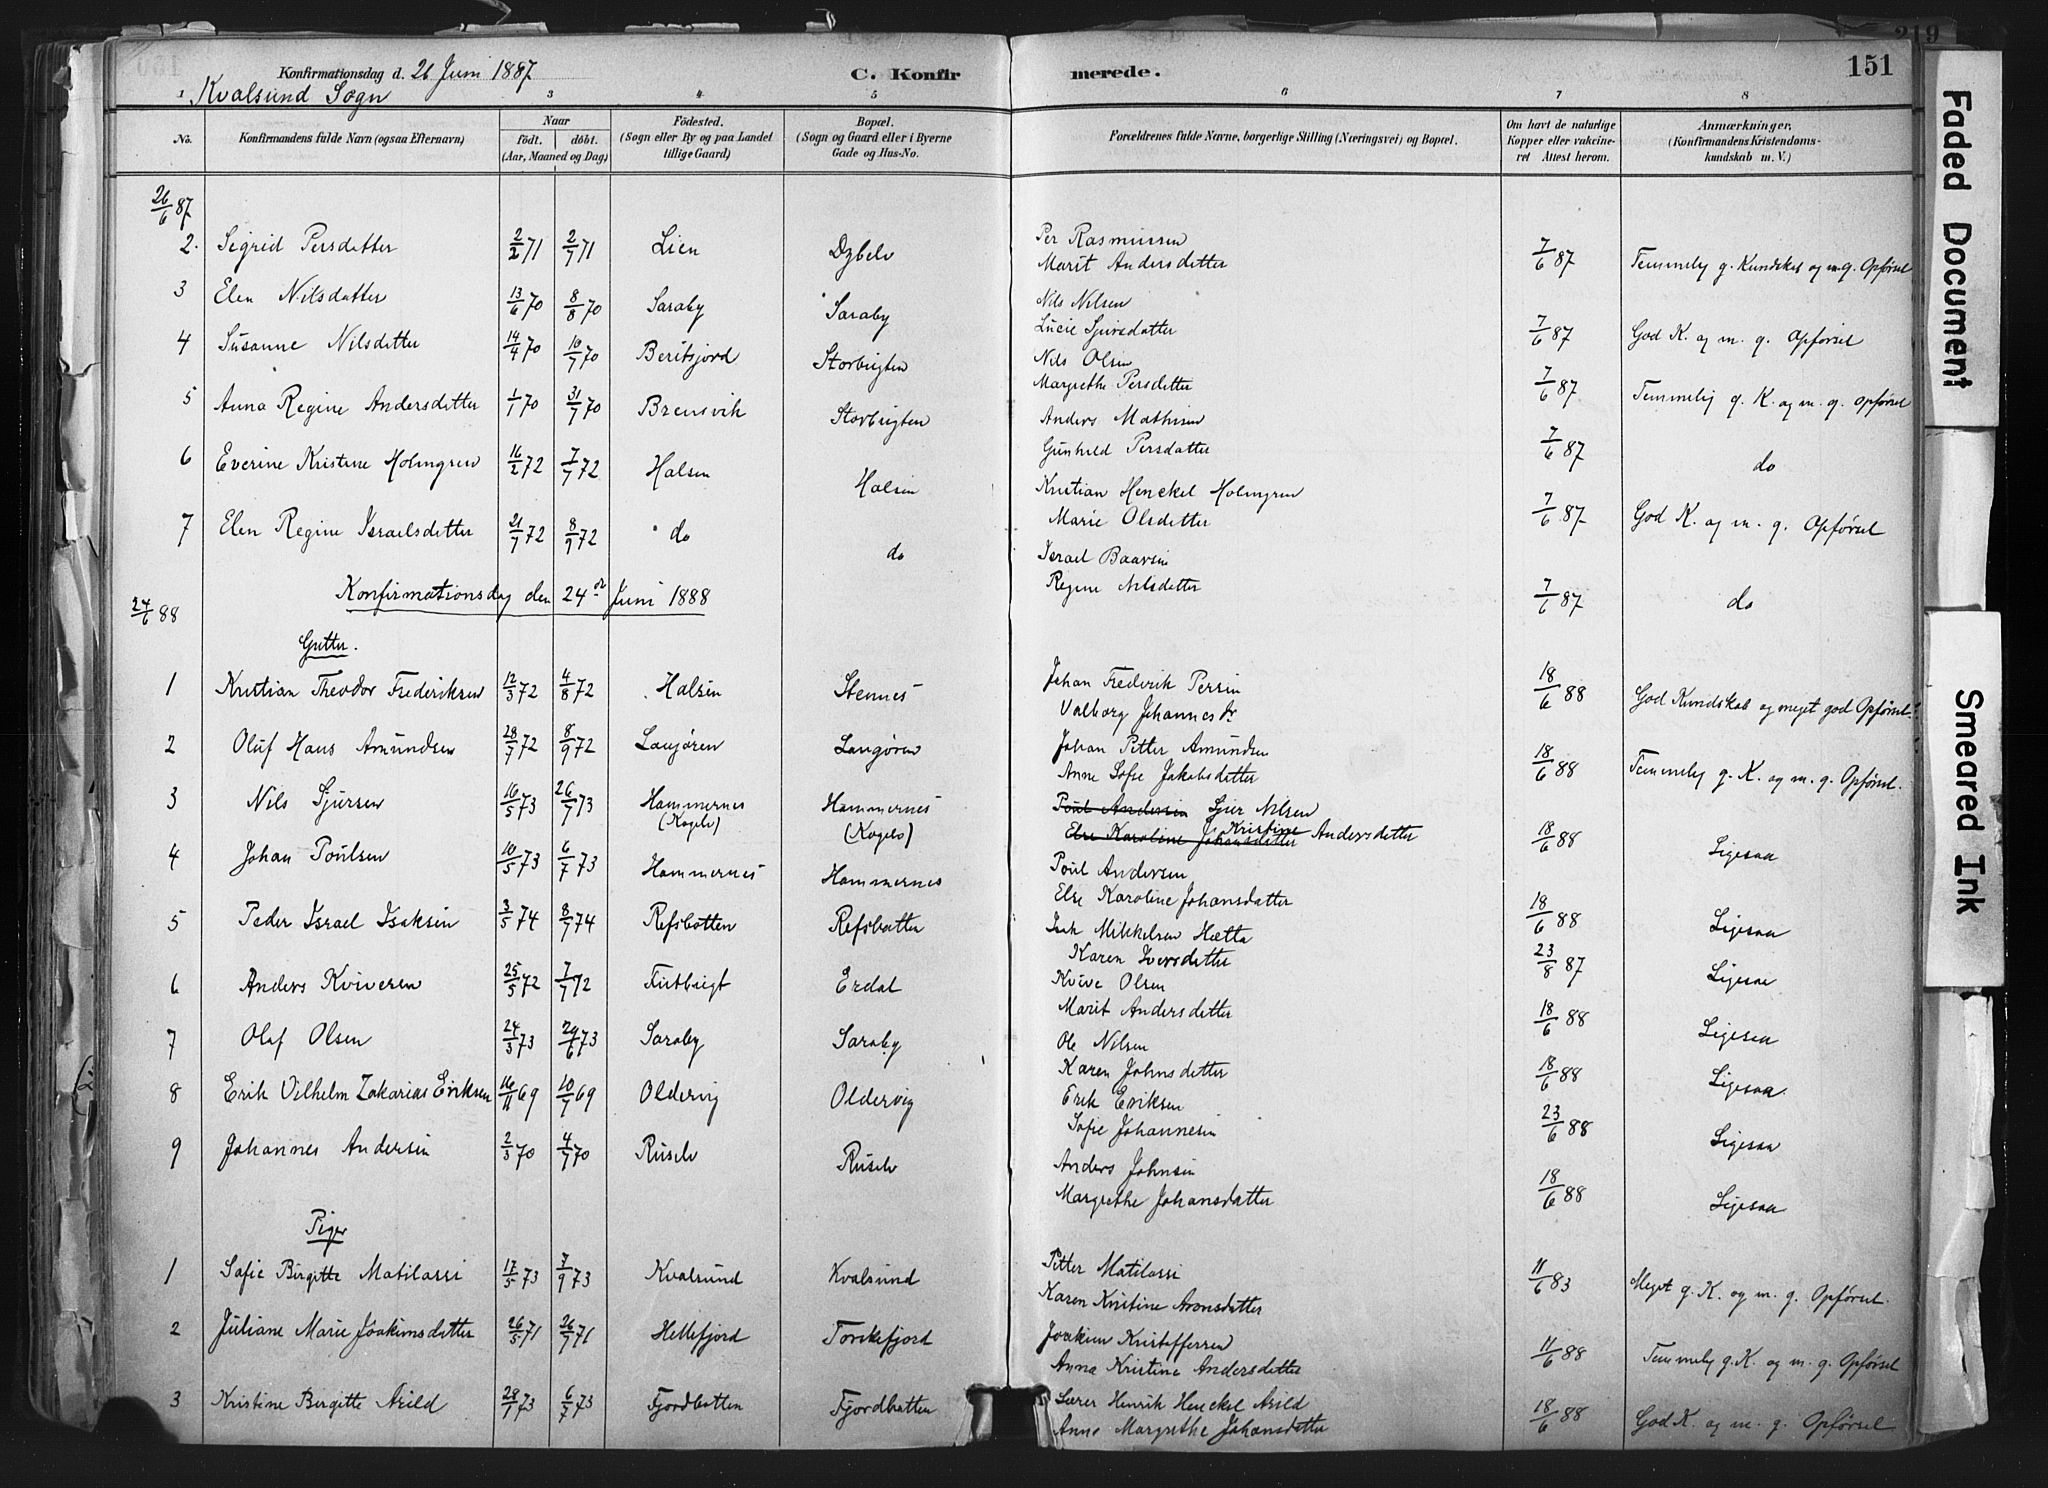 219
151
Konfirmationsdag d. 26 Juni 1887
C. Konfirmerede.
Kvalsund Sogn
1 3 4 5 6 7 8
No.
Konfirmandens fulde Navn (ogsaa Efternavn)
Naar
født. døbt.
(Aar, Maaned og Dag)
Fødested.
(Sogn eller By og paa Landet
tillige Gaard)
Bopæl.
(Sogn og Gaard eller i Byerne
Gade og Hus-No.
Forældrenes fulde Navne, borgerlige Stilling (Næringsvei) og Bopæl.
Om havt de naturlige
Kopper eller vakcine-
ret Attest herom.
Anmærkninger.
(Konfirmandens Kristendoms-
kundskab m. V.)
26/6 87
2. Sigrid Persdatter 2/2 71 2/7 71 Lien Dybelv Per Rasmussen
Marit Andersdatter 7/6 87 Temmelig g. Kundskab og m. g. Opførsel
3 Elen Nilsdatter 13/6 70 8/8 70 Saraby Saraby Nils Nilsen
Lucie Sjursdatter 7/6 87 God K. og m. g. Opførsel
4 Susanne Nilsdatter 14/4 70 10/7 70 Beritsjord Storbugten Nils Olsen
Margrethe Persdatter 7/6 87 Temmelig g. K. og m. g. opførsel
5 Anna Regine Andersdatter 1/1 70 31/7 70 Brensvik Storbugten Anders Mathisen
Gunhild Persdatter 7/6 87 do
6 Everine Kristine Holmgren 16/2 72 7/7 72 Halsen Halsen Kristian Henckel Holmgren
Marie Olsdatter 7/6 87 God K. og m. g. Opførsel
7 Elen Regine Israelsdatter 21/7 72 8/9 72 do do Israel Baarsen
Regine Nilsdatter 7/6 87 do
24/6 88 Konfirmationsdag den 24de Juni 1888
Gutter.
1 Kristian Theodor Frederiksen 12/3 72 4/8 72 Halsen Stennes Johan Frederik Persen
Valborg Johannesdr 18/6 88 God Kundskab og meget god Opførsel.
2 Oluf Hans Amundsen 28/7 72 8/9 72 Langøren Langøren Johan Petter Amundsen
Anne Sofie Jakobsdatter 18/6 88 Temmelig g. K. og m. g. Opførsel.
3 Nils Sjursen 16/5 73 26/7 73 Hammernes (Kogelv) Hammernes (Kogelv) Poul Andersen Sjur Nilsen
Else Karoline Johansdatter Kristine Andersdatter 18/6 88 Ligesaa
4 Johan Poulsen 10/5 73 6/7 73 Hammernes Hammernes Poul Andersen
Else Karoline Johansdatter 18/6 88 Ligesaa
5 Peder Israel Isaksen 3/5 74 8/7 74 Refsbotten Refsbotten Isak Mikkelsen Hætta
Karen Iversdatter 23/8 87 Ligesaa
6 Anders Kviversen 25/5 72 7/7 72 Erdal Kvive Olsen
Marit Andersdatter 18/6 88 Ligesaa
7 Olaf Olsen 24/3 73 29/6 73 Saraby Saraby Ole Nilsen
Karen Johnsdatter 18/6 88 Ligesaa
8 Erik Vilhelm Zakarias Eriksen 16/11 69 10/7 69 Oldervig Oldervig Erik Eriksen
Sofie Johannesen 23/6 88 Ligesaa
9 Johannes Andersen 2/3 70 4/7 70 Ruselv Ruselv Anders Johnsen
Margrethe Johansdatter 18/6 88 Ligesaa
Piger
1 Sofie Birgitte Matilassi 17/5 73 7/9 73 Kvalsund Kvalsund Petter Matilassi
Karen Kristine Aronsdatter 11/6 83 Meget g. K. og m. g. Opførsel.
2 Juliane Marie Joakimsdatter 26/5 71 26/7 71 Hellefjord Torskefjord Joakim Kristoffersen
Anna Kristine Andersdatter 11/6 88 Temmelig g. K. og m. g. Opførsel
3 Kristine Birgitte Arild 28/1 73 6/7 73 Fjordbotten Fjordbotten Lærer Henrik Henckel Arild
Anne Margrethe Johansdatter 18/6 88 God K. og m. g. Opførsel
Faded Document
Smeared Ink